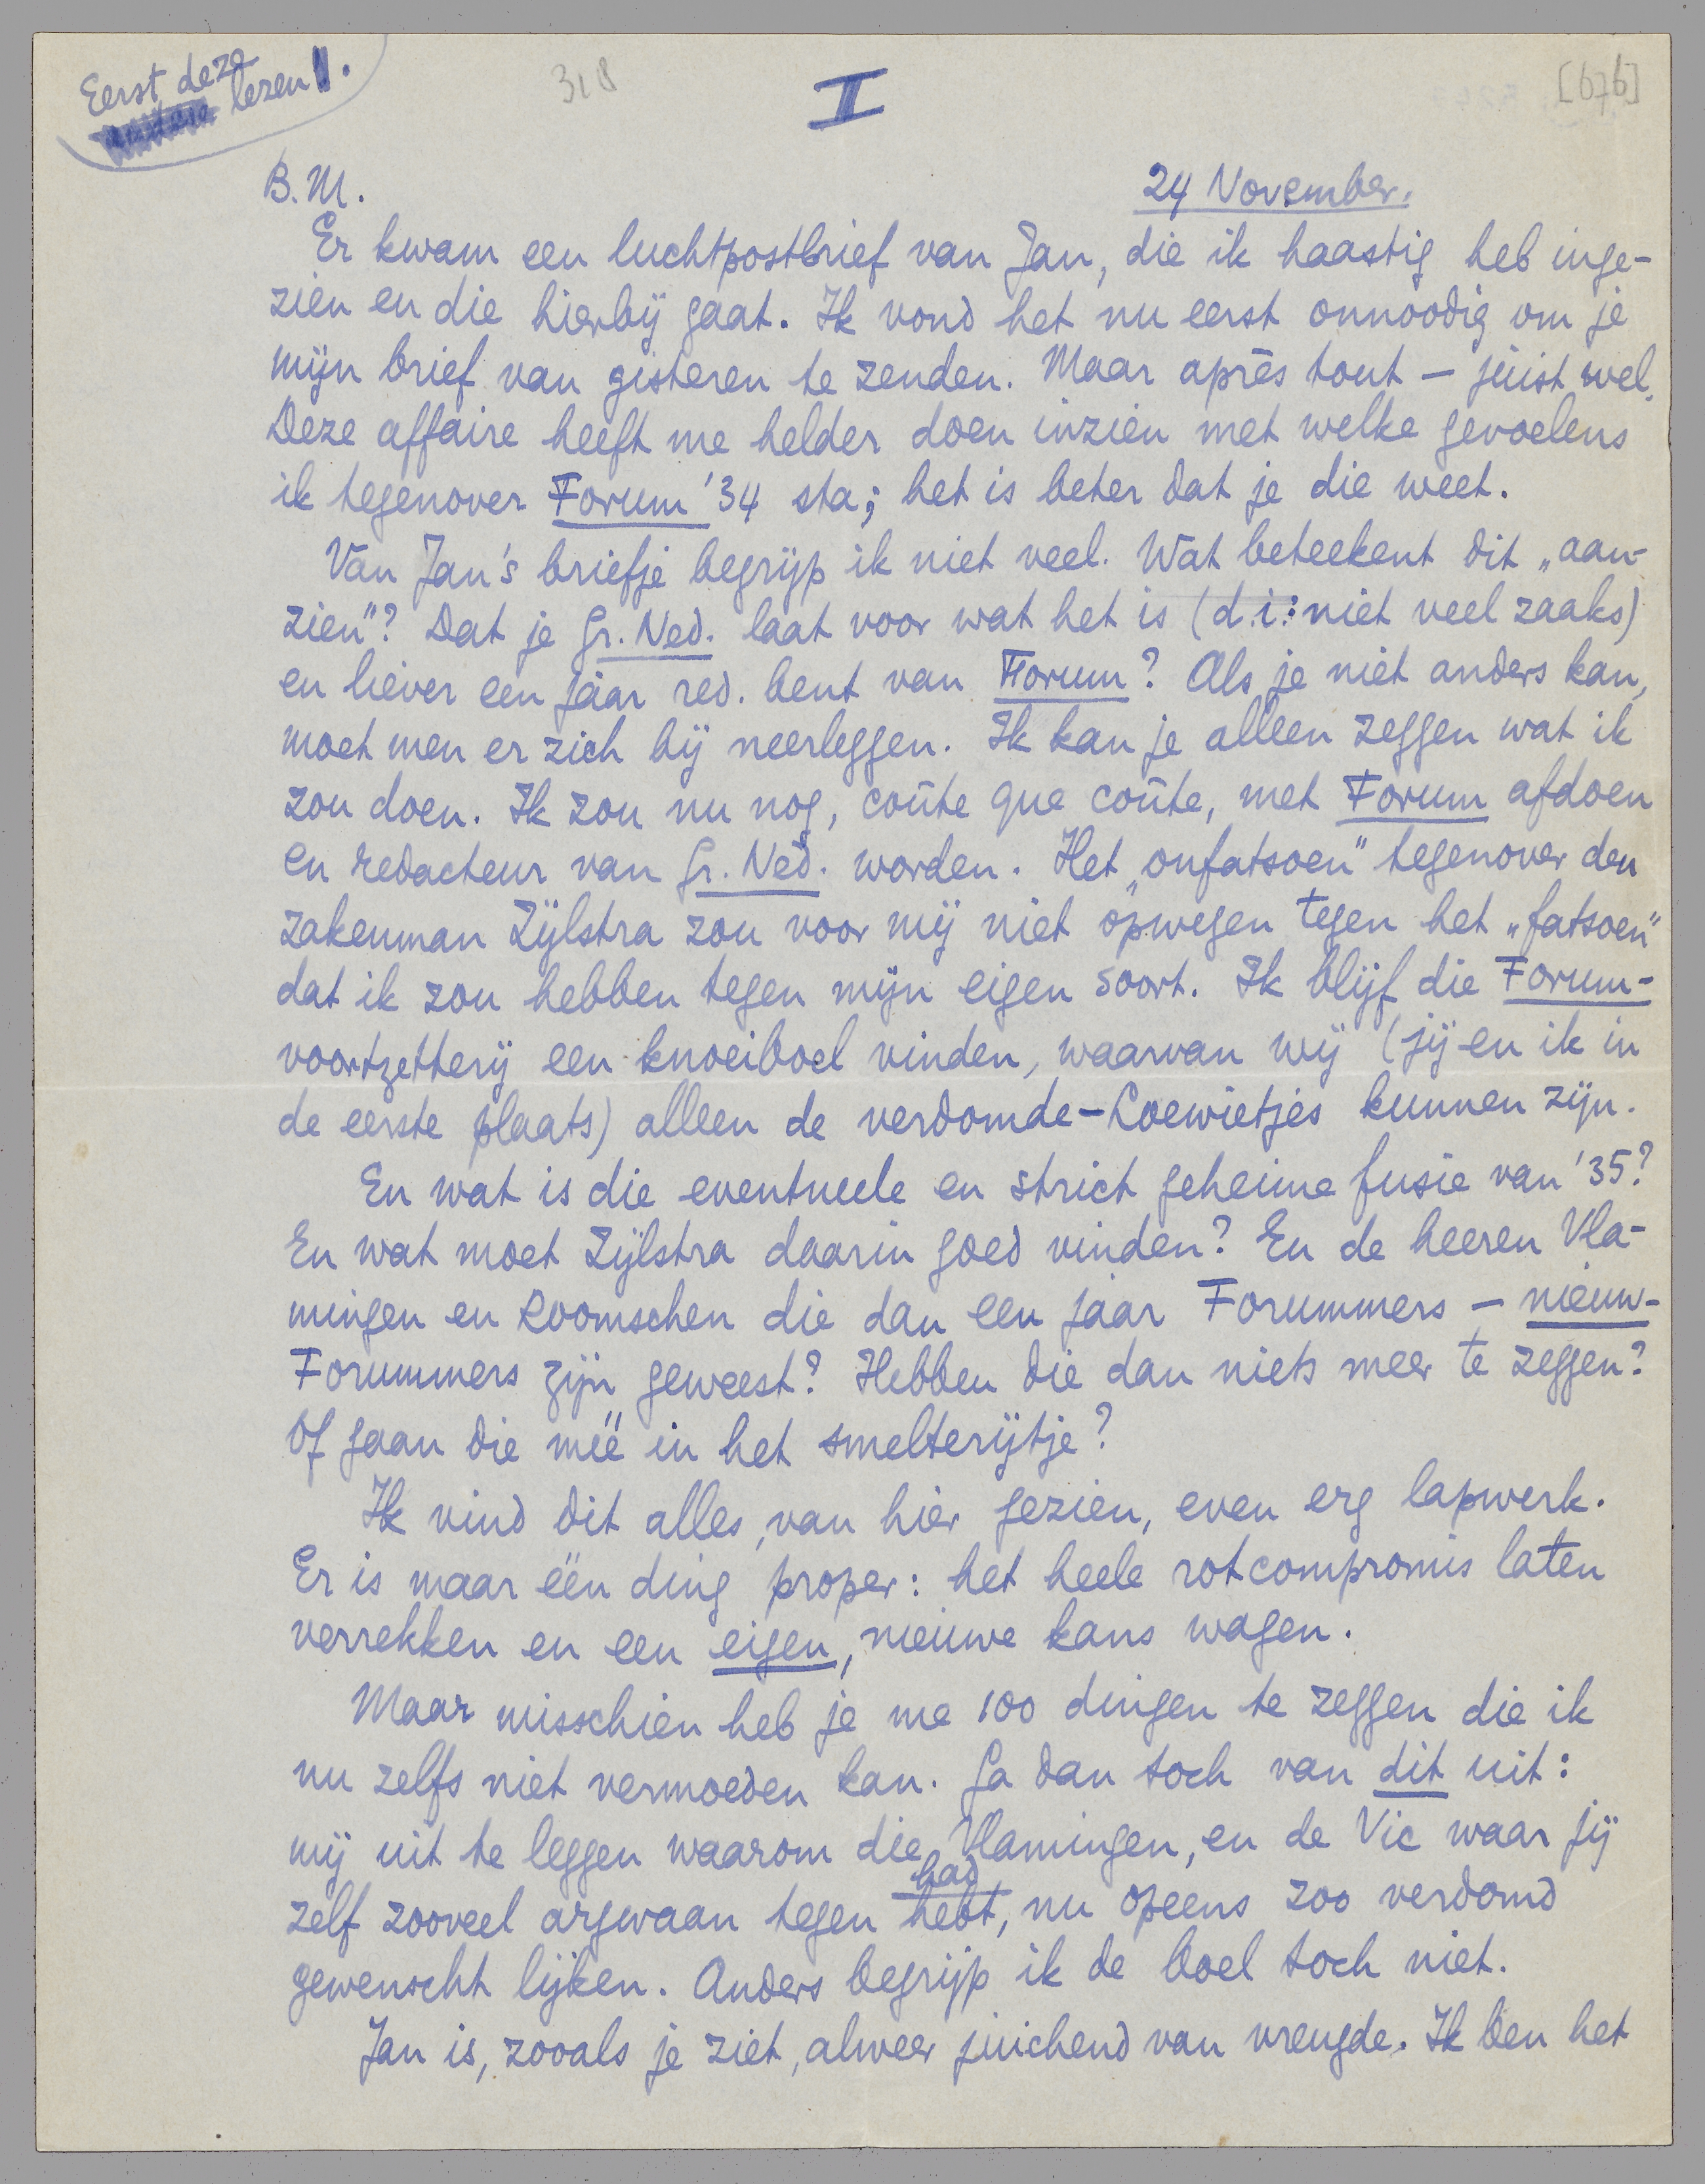 Eerst deze
lezen.
318
I
[676]
B.M.
24 November.
Er kwam een luchtpostbrief van Jan, die ik haastig heb inge-
zien en die hierbij gaat. Ik vond het nu eerst onnoodig om je
mijn brief van gisteren te zenden. Maar après tout — juist wel.
Deze affaire heeft me helder doen inzien met welke gevoelens
ik tegenover Forum '34 sta; het is beter dat je die weet.
Van Jan's briefje begrijp ik niet veel. Wat beteekent dit „aan-
zien"? Dat je Gr. Ned. laat voor wat het is (d.i: niet veel zaaks)
en liever een jaar red. bent van Forum? Als je niet anders kan,
moet men er zich bij neerleggen. Ik kan je alleen zeggen wat ik
zou doen. Ik zou nu nog, coûte que coûte, met Forum afdoen
en redacteur van Gr. Ned. worden. Het „onfatsoen" tegenover den
zakenman Zijlstra zou voor mij niet opwegen tegen het „fatsoen"
dat ik zou hebben tegen mijn eigen soort. Ik blijf die Forum-
voortzetterij een knoeiboel vinden, waarvan wij (jij en ik in
de eerste plaats) alleen de verdomde-Loewietjes kunnen zijn.
En wat is die eventueele en strict geheime fusie van '35?
En wat moet Zijlstra daarin goed vinden? En de heeren Vla-
mingen en Roomschen die dan een jaar Forummers — nieuw-
Forummers zijn geweest? Hebben die dan niets meer te zeggen?
Of gaan die méé in het smelterijtje?
Ik vind dit alles, van hier gezien, even erg lapwerk.
Er is maar één ding proper: het heele rotcompromis laten
verrekken en een eigen, nieuwe kans wagen.
Maar misschien heb je me 100 dingen te zeggen die ik
nu zelfs niet vermoeden kan. Ga dan toch van dit uit:
mij uit te leggen waarom die Vlamingen, en de Vic waar jij
had
zelf zooveel argwaan tegen hebt, nu opeens zoo verdomd
gewenscht lijken. Anders begrijp ik de boel toch niet.
Jan is, zooals je ziet, alweer juichend van vreugde. Ik ben het